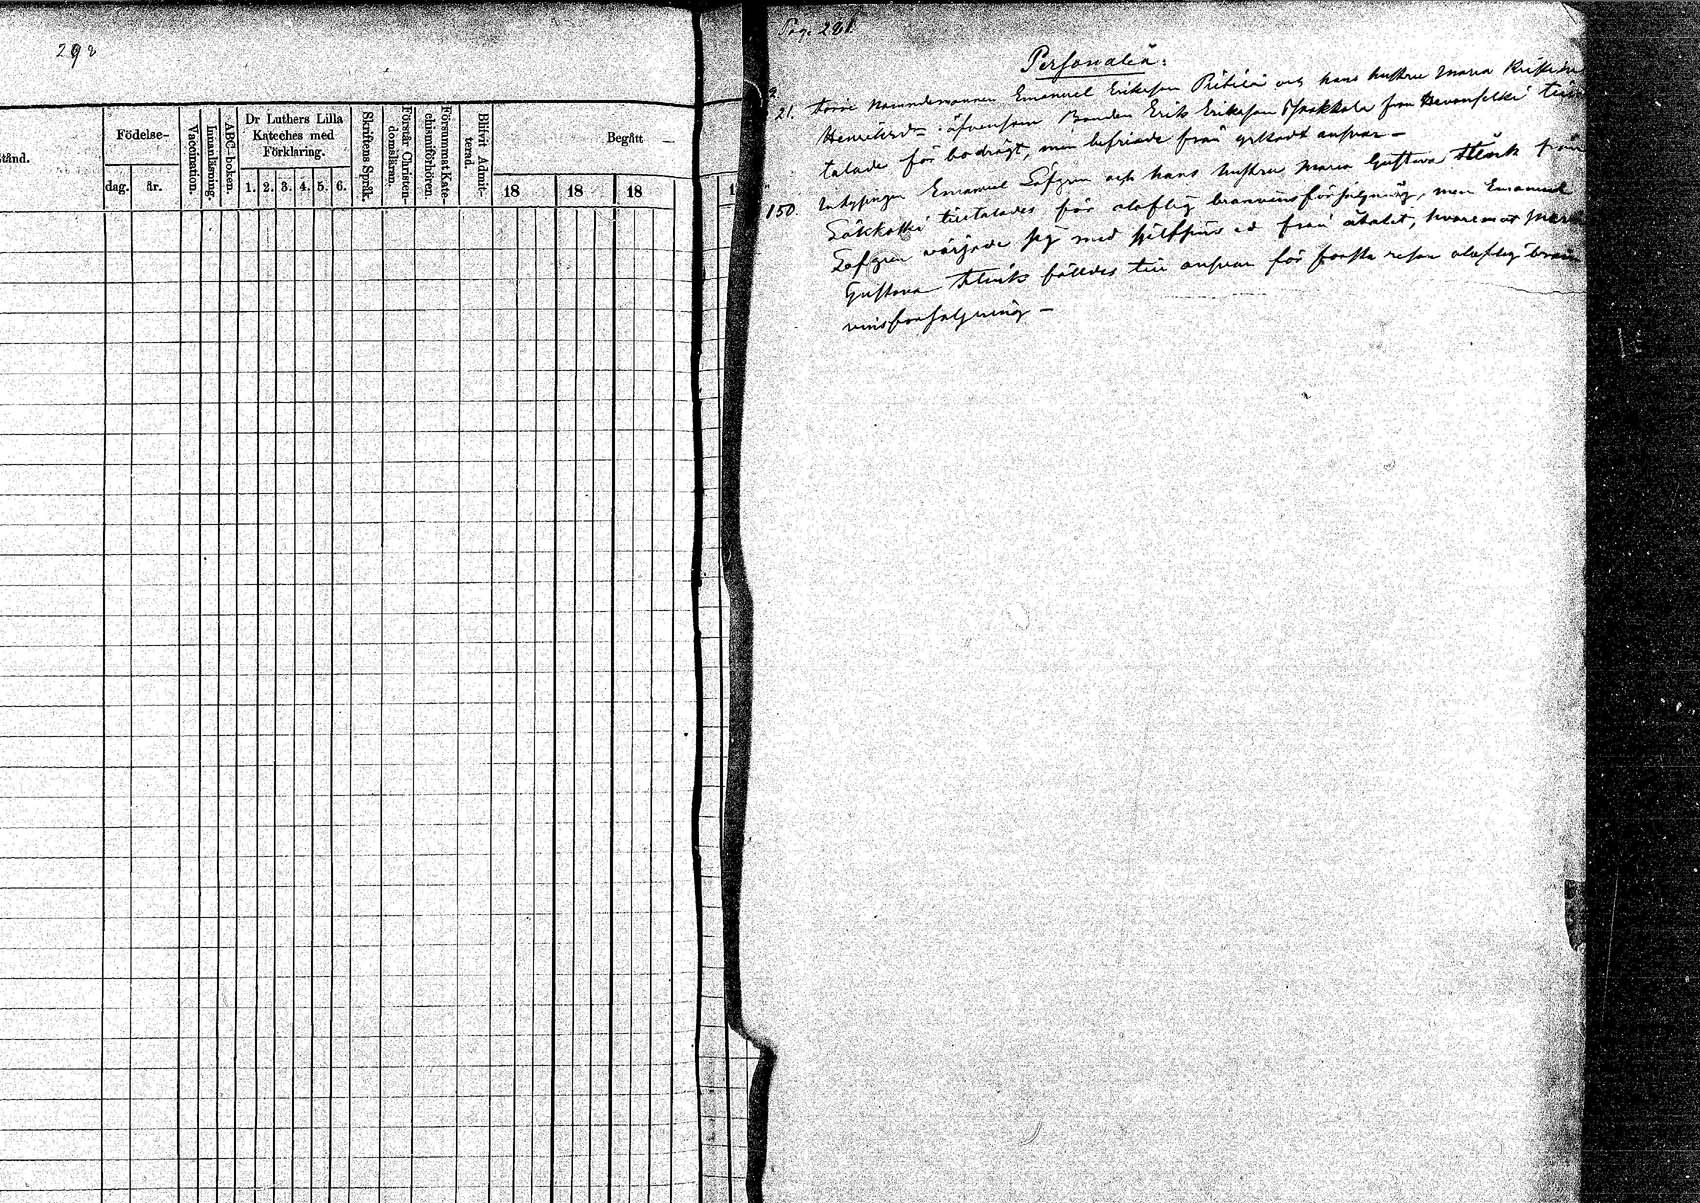 292
tånd.
Födelse-
dag.
år.
Vaccination.
Innanläsning.
ABC-boken.
Dr Luthers Lilla
Kateches med
Förklaring.
1. 2. 3. 4. 5. 6.
Skriftens Språk.
Förstår Christen-
domsläran.
Försummat Kate-
chismiförhören.
Blifvit Admit-
terad.
Begått —
18
18
18
1
Pag. 281
Personalia:
21. förre Nämndemannen Emanuel Eriksson Pietilä och hans hustru Maria
Henriksd:r äfvensom Bonden Erik Eriksson från
talade för bedrägt, men befriade från yrkadt ansvar —
150. Inhysingen Emanuel Löfgren och hans hustru Maria Gustava Flenk från
tilltalades för olaflig bränvinsförsäljning, men Emanuel
Löfgren värjade sig med ed från åtalet, hvaremot Maria
Gustava Flenk fälldes till ansvar för första resan olaflig brän
vinsförsäljning —